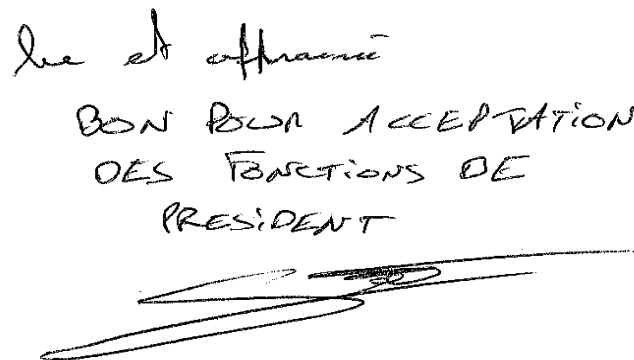 lu et approuvé
BON POUR ACCEPTATION
DES FONCTIONS DE
PRESIDENT